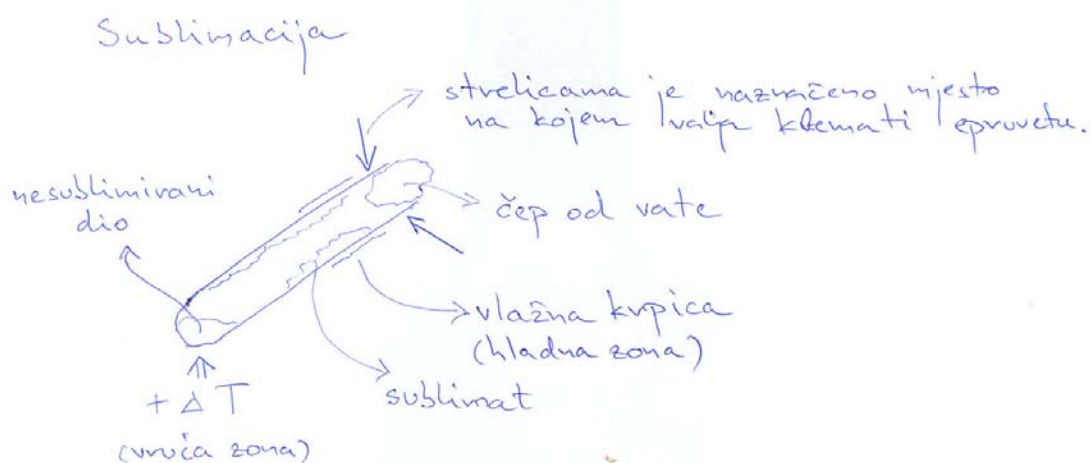 Sublimacija
strelicama je naznačeno mjesto
na kojem valja klemati epruvetu.
nesublimirani
dio
čep od vate
vlažna krpica
(hladna zona)
sublimat
+ Δ T
(vruća zona)